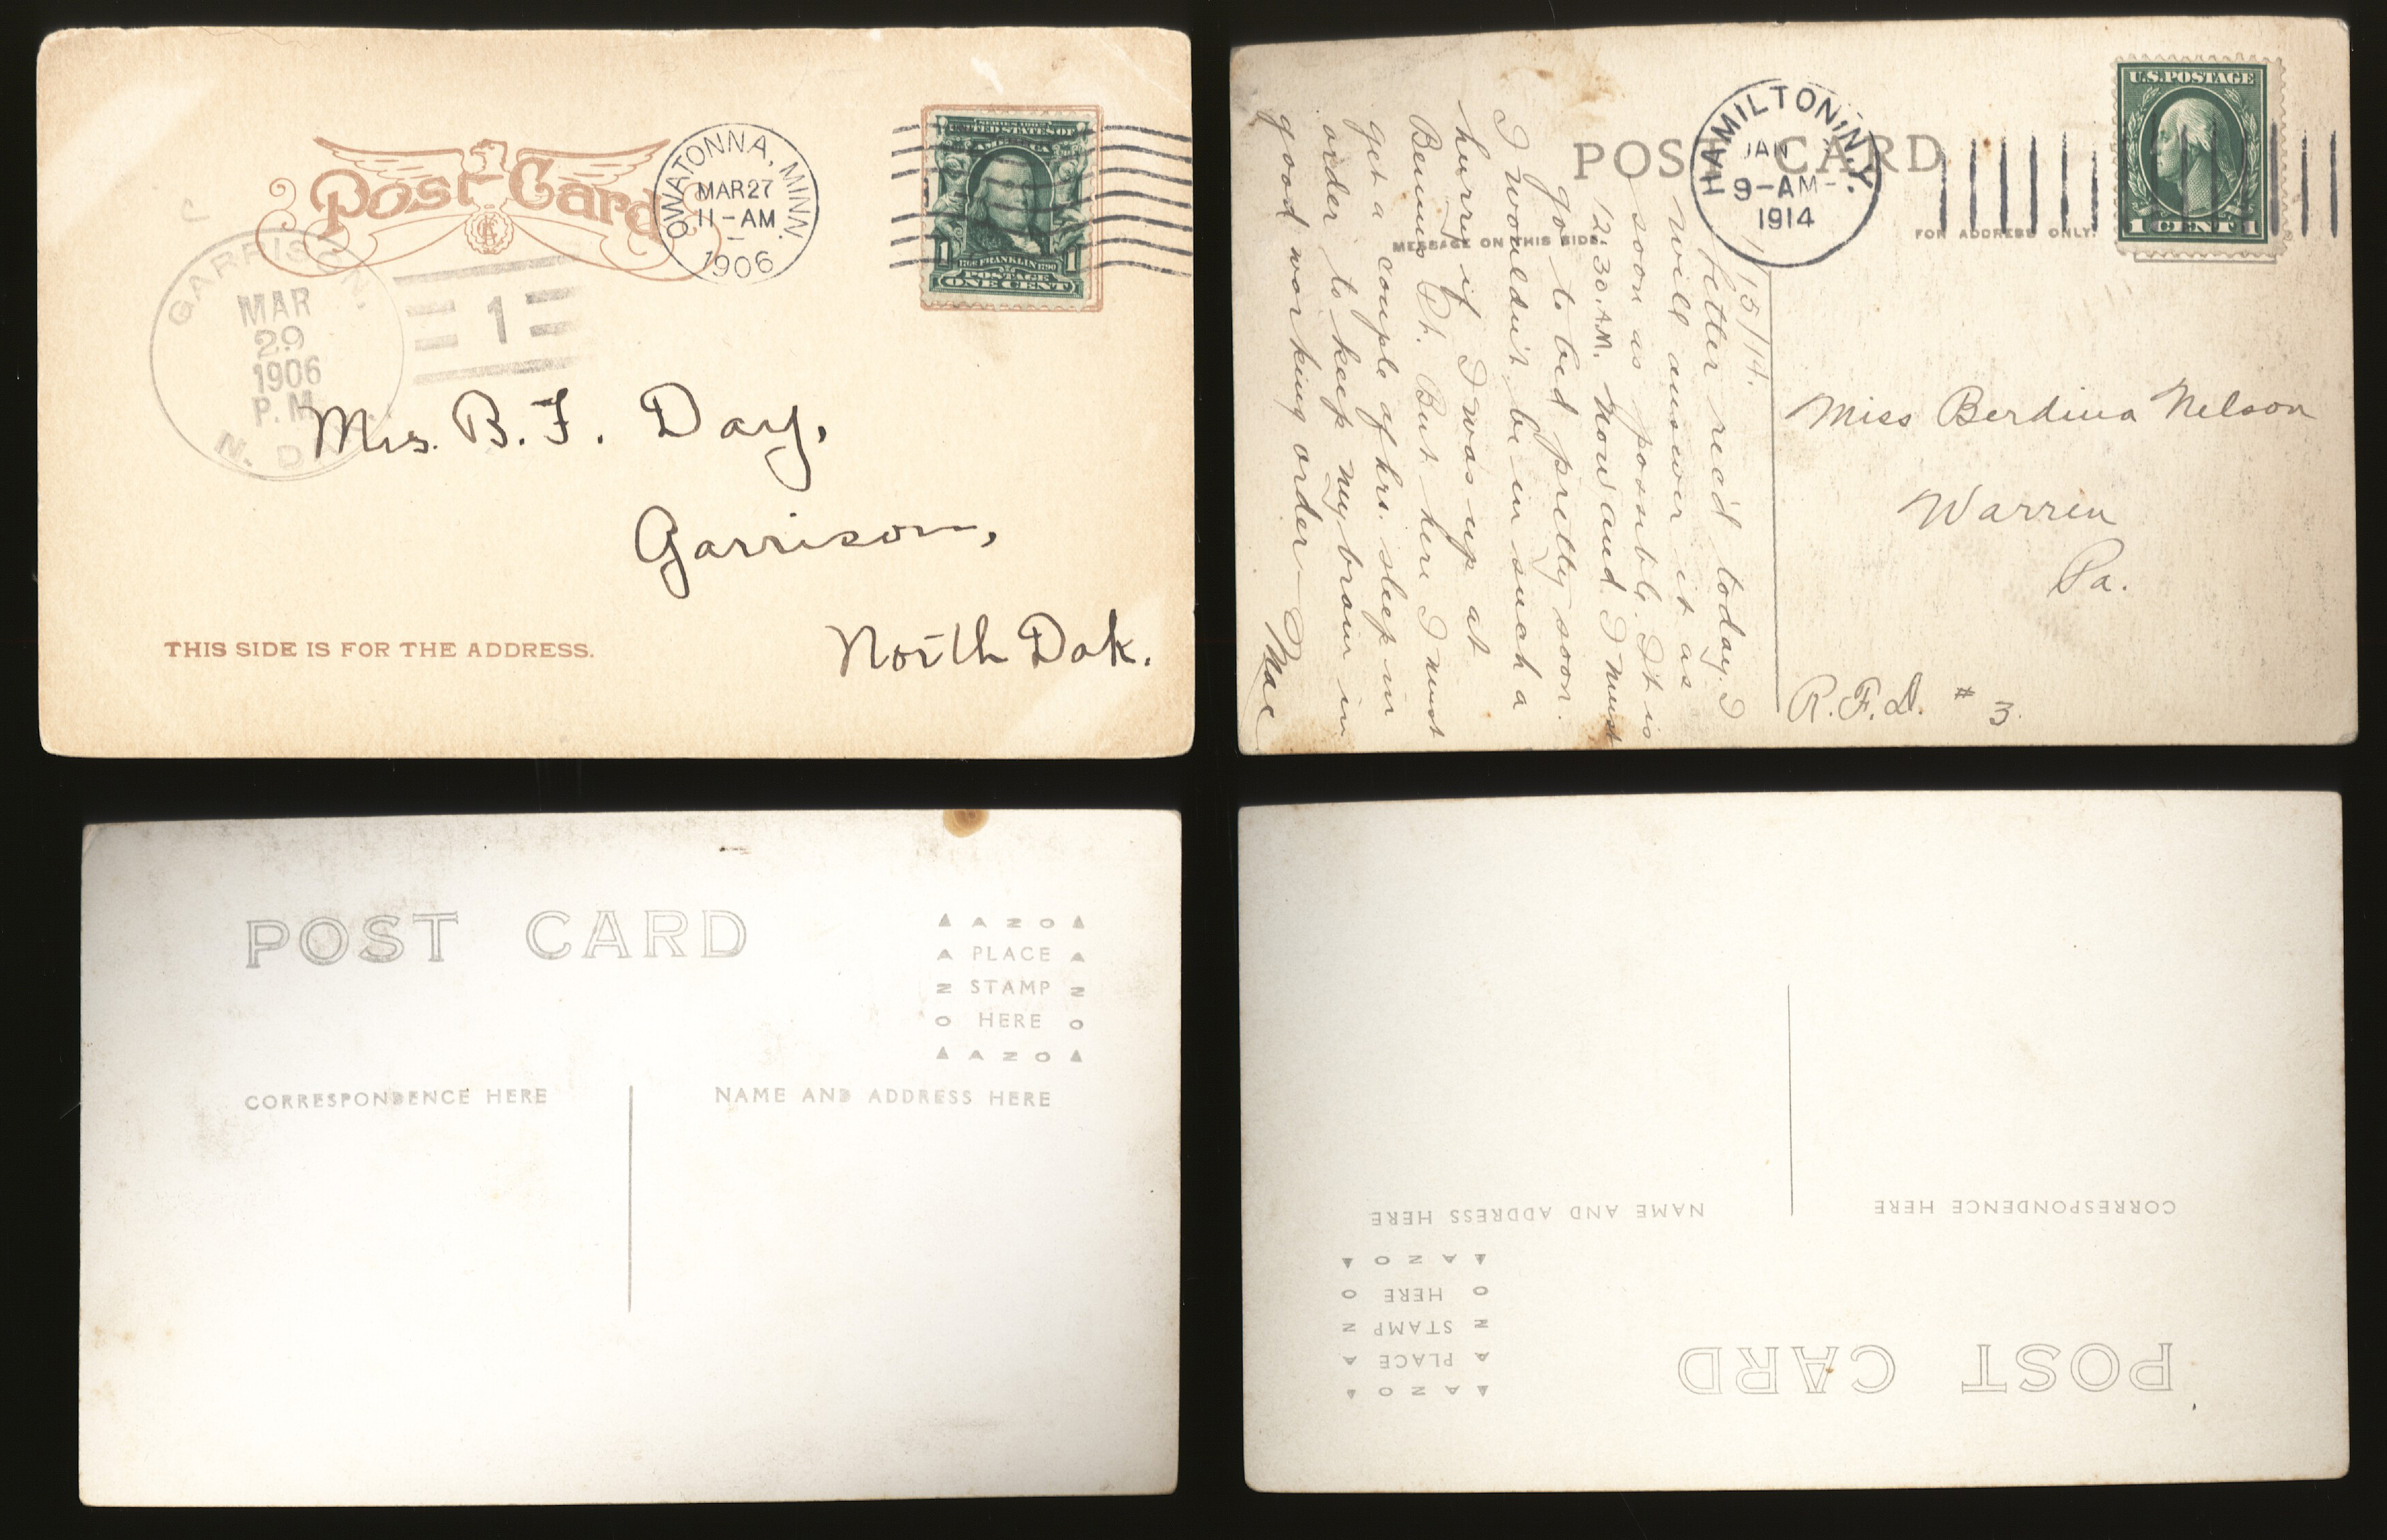 Post Card
OWATONNA, MINN.
MAR 27
11-AM
1906
SERIES 1902
UNITED STATES OF
AMERICA
1706 FRANKLIN 1790
POSTAGE
1 1
ONE CENT
GARRISON,
MAR
29
1906
P.M.
N. D.
1
Mrs. B. F. Day,
Garrison,
North Dak.
THIS SIDE IS FOR THE ADDRESS.
POST CARD
HAMILTON, N.Y.
JAN
9-AM-
1914
U.S. POSTAGE
1 CENT 1
MESSAGE ON THIS SIDE
FOR ADDRESS ONLY.
1/15/14.
Letter rec'd today. I
will answer it as
soon as possible. It is
12:30 A.M. now and I must
go to bed pretty soon.
I wouldn't be in such a
hurry if I was up at
Bemus Pt. But here I must
get a couple of hrs. sleep in
order to keep my brain in
good working order—
Mac
Miss Berdina Nelson
Warren
Pa.
R.F.D. # 3.
POST CARD
AZO
PLACE
STAMP
HERE
AZO
CORRESPONDENCE HERE
NAME AND ADDRESS HERE
POST CARD
AZO
PLACE
STAMP
HERE
AZO
CORRESPONDENCE HERE
NAME AND ADDRESS HERE